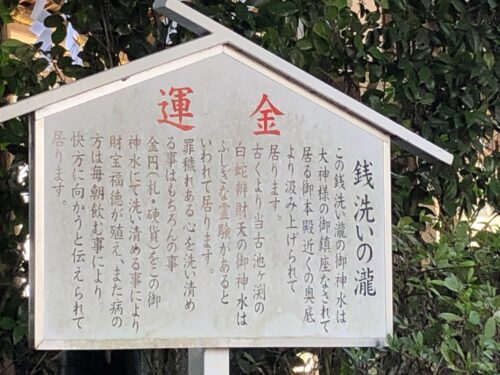 金運
銭洗いの瀧
この銭洗い瀧の御神水は
大神様の御鎮座なされて
居る御本殿近くの奥底
より汲み上げられて
居ります。
古くより当古池ヶ渕の
白蛇辯財天の御神水は
ふしぎな霊験があると
いわれて居ります。
罪穢れある心を洗い清め
る事はもちろんの事
金円（札・硬貨）をこの御
神水にて洗い清める事により
財宝福徳が殖え、また病の
方は毎朝飲む事により
快方に向かうと伝えられて
居ります。